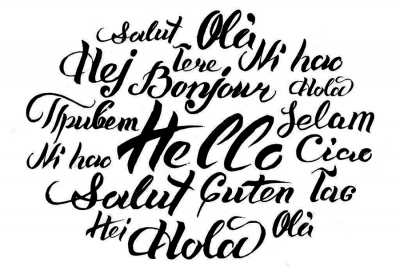 Salut Olà
Hej Tere Ni hao
Bonjour Hola
Привет Hello Selam
Ni hao Ciao
Salut Guten Tag
Hei Hola Olà